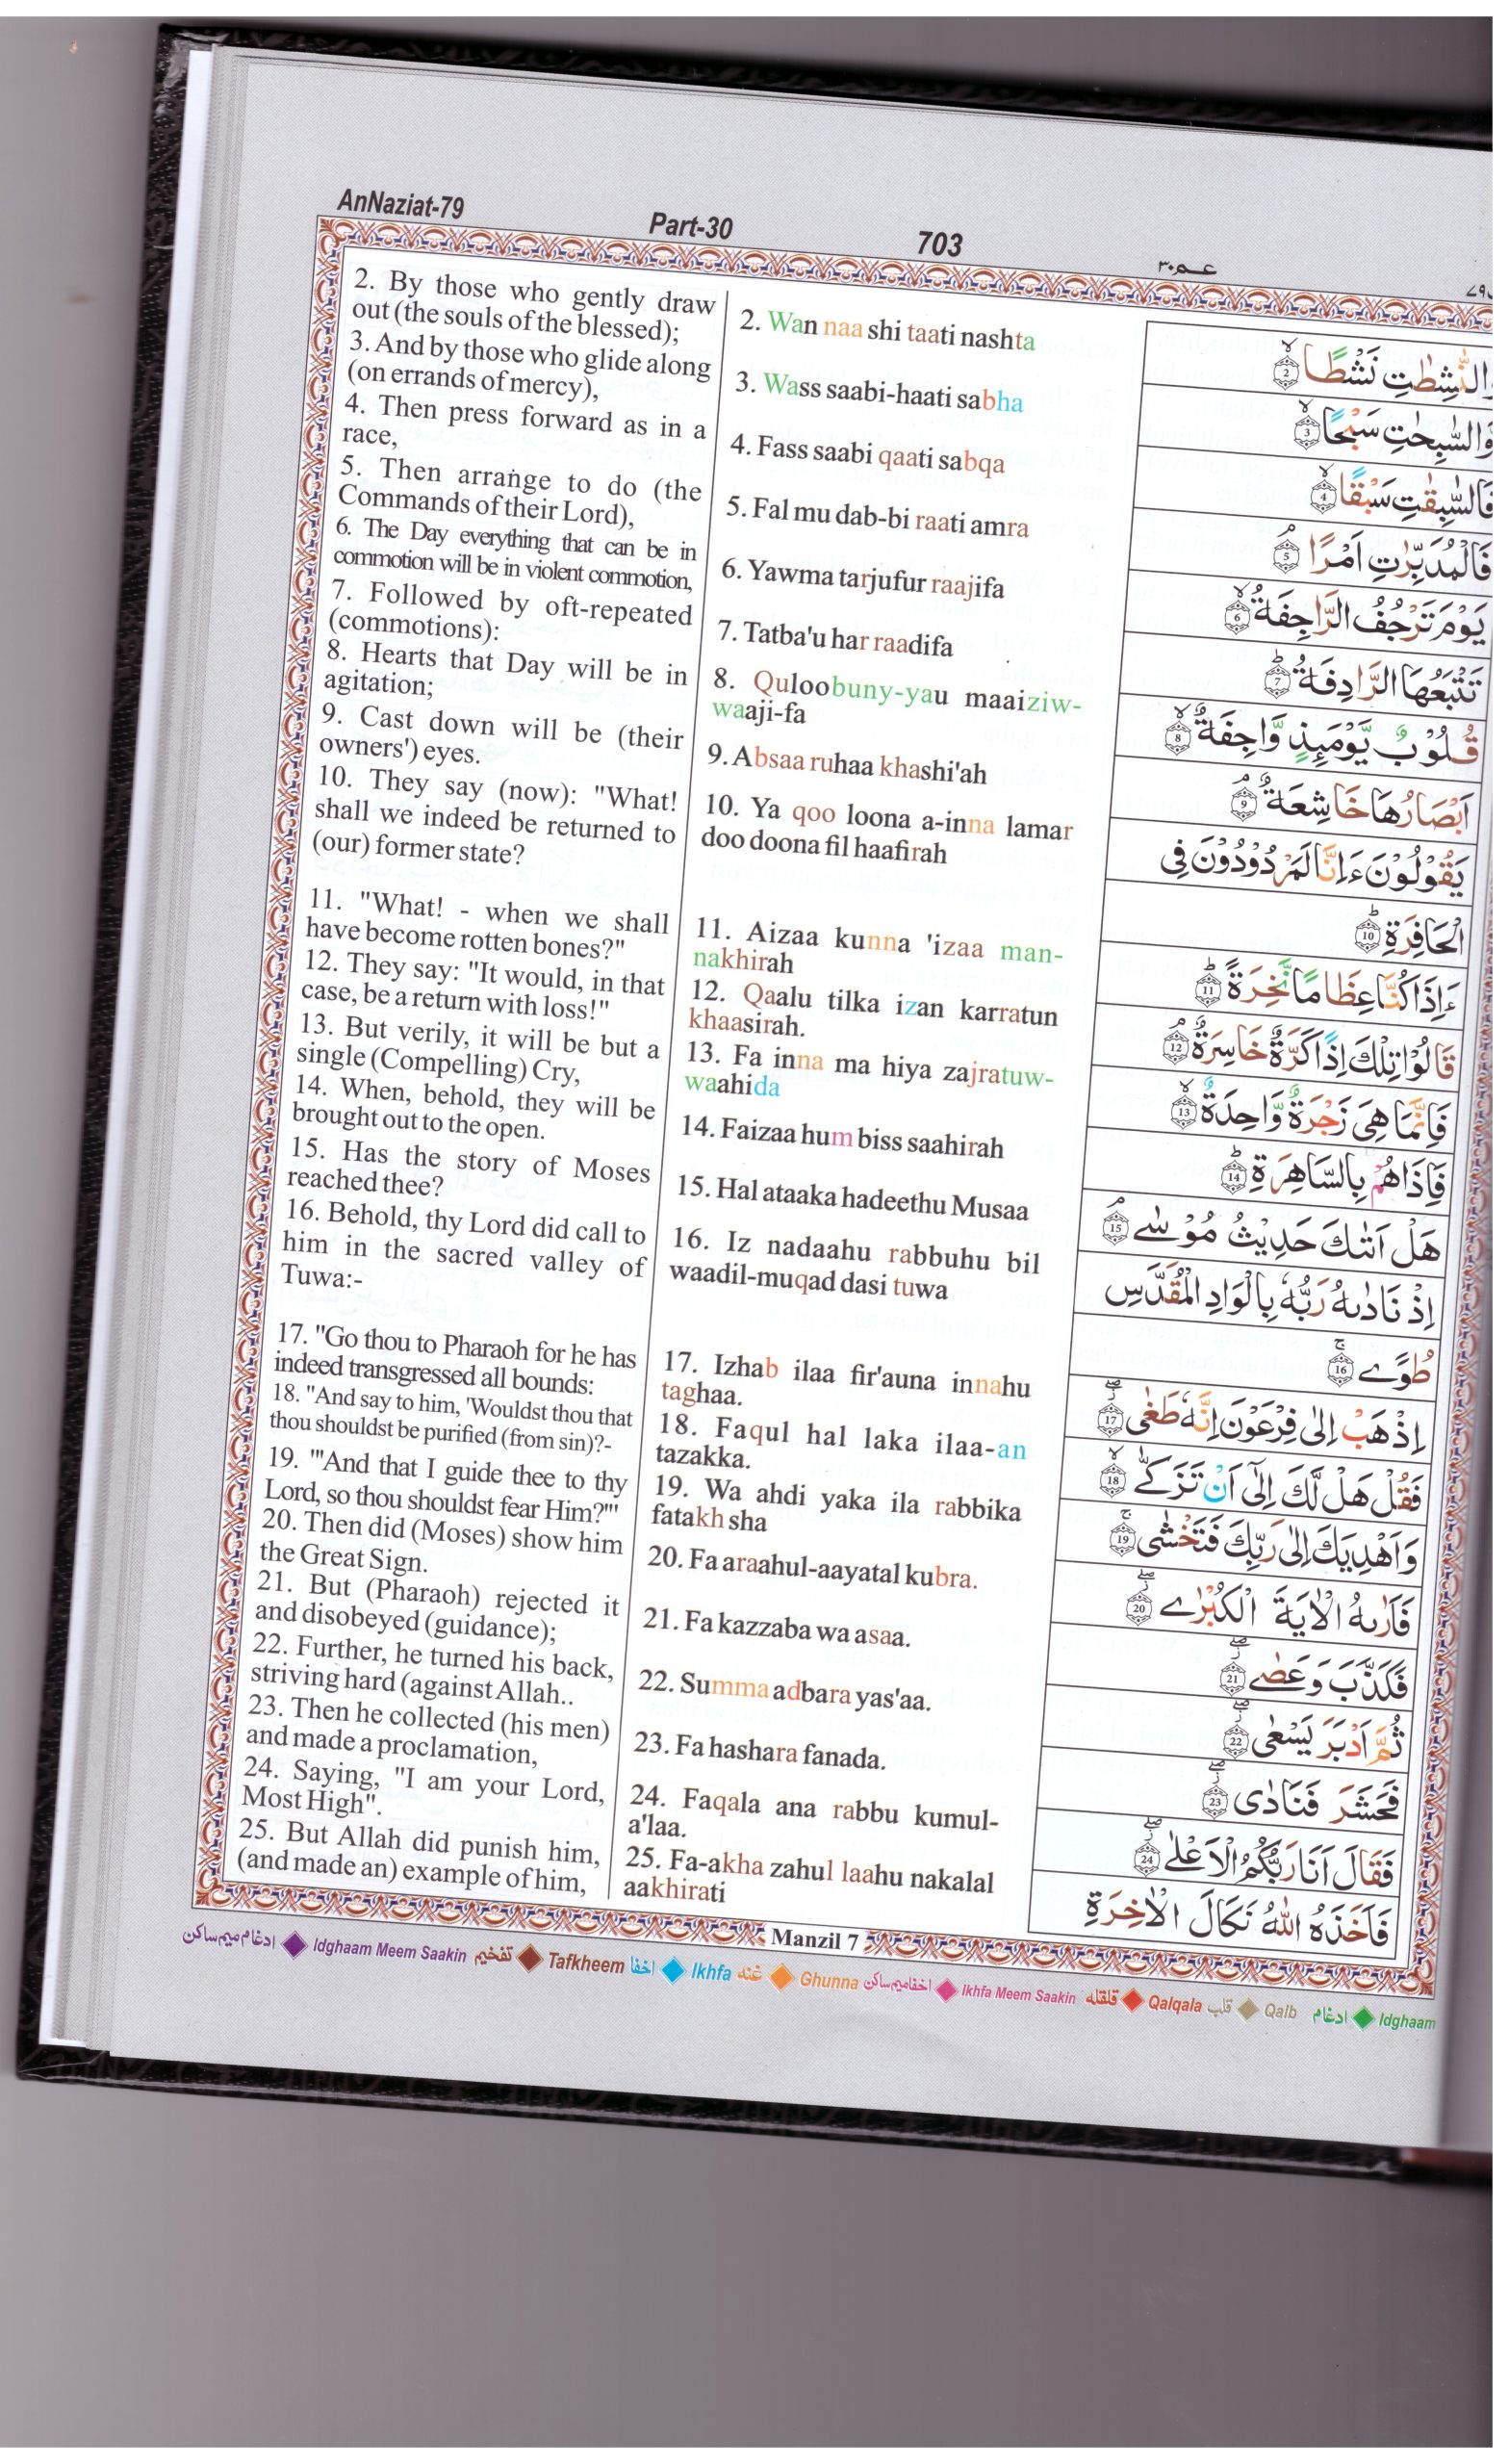 AnNaziat-79
Part-30
703
عـم٣٠
2. By those who gently draw
out (the souls of the blessed);
3. And by those who glide along
(on errands of mercy),
4. Then press forward as in a
race,
5. Then arrange to do (the
Commands of their Lord),
6. The Day everything that can be in
commotion will be in violent commotion,
7. Followed by oft-repeated
(commotions):
8. Hearts that Day will be in
agitation;
9. Cast down will be (their
owners') eyes.
10. They say (now): "What!
shall we indeed be returned to
(our) former state?
11. "What! - when we shall
have become rotten bones?"
12. They say: "It would, in that
case, be a return with loss!"
13. But verily, it will be but a
single (Compelling) Cry,
14. When, behold, they will be
brought out to the open.
15. Has the story of Moses
reached thee?
16. Behold, thy Lord did call to
him in the sacred valley of
Tuwa:-
17. "Go thou to Pharaoh for he has
indeed transgressed all bounds:
18. "And say to him, 'Wouldst thou that
thou shouldst be purified (from sin)?-
19. "'And that I guide thee to thy
Lord, so thou shouldst fear Him?'"
20. Then did (Moses) show him
the Great Sign.
21. But (Pharaoh) rejected it
and disobeyed (guidance);
22. Further, he turned his back,
striving hard (against Allah..
23. Then he collected (his men)
and made a proclamation,
24. Saying, "I am your Lord,
Most High".
25. But Allah did punish him,
(and made an) example of him,
2. Wan naa shi taati nashta
3. Wass saabi-haati sabha
4. Fass saabi qaati sabqa
5. Fal mu dab-bi raati amra
6. Yawma tarjufur raajifa
7. Tatba'u har raadifa
8. Quloobuny-yau maaiziw-
waaji-fa
9. Absaa ruhaa khashi'ah
10. Ya qoo loona a-inna lamar
doo doona fil haafirah
11. Aizaa kunna 'izaa man-
nakhirah
12. Qaalu tilka izan karratun
khaasirah.
13. Fa inna ma hiya zajratuw-
waahida
14. Faizaa hum biss saahirah
15. Hal ataaka hadeethu Musaa
16. Iz nadaahu rabbuhu bil
waadil-muqad dasi tuwa
17. Izhab ilaa fir'auna innahu
taghaa.
18. Faqul hal laka ilaa-an
tazakka.
19. Wa ahdi yaka ila rabbika
fatakh sha
20. Fa araahul-aayatal kubra.
21. Fa kazzaba wa asaa.
22. Summa adbara yas'aa.
23. Fa hashara fanada.
24. Faqala ana rabbu kumul-
a'laa.
25. Fa-akha zahul laahu nakalal
aakhirati
النّٰشِطٰتِ نَشْطًا ۙ 2
وَّالسّٰبِحٰتِ سَبْحًا ۙ 3
فَالسّٰبِقٰتِ سَبْقًا ۙ 4
فَالْمُدَبِّرٰتِ اَمْرًا ۘ 5
يَوْمَ تَرْجُفُ الرَّاجِفَةُ ۙ 6
تَتْبَعُهَا الرَّادِفَةُ ؕ 7
قُلُوْبٌ يَّوْمَئِذٍ وَّاجِفَةٌ ۙ 8
اَبْصَارُهَا خَاشِعَةٌ ۘ 9
يَقُوْلُوْنَ ءَاِنَّا لَمَرْدُوْدُوْنَ فِى
الْحَافِرَةِ ؕ 10
ءَاِذَا كُنَّا عِظَامًا نَّخِرَةً ؕ 11
قَالُوْا تِلْكَ اِذًا كَرَّةٌ خَاسِرَةٌ ۘ 12
فَاِنَّمَا هِىَ زَجْرَةٌ وَّاحِدَةٌ ۙ 13
فَاِذَا هُمْ بِالسَّاهِرَةِ ؕ 14
هَلْ اَتٰىكَ حَدِيْثُ مُوْسٰے ۘ 15
اِذْ نَادٰىهُ رَبُّهٗ بِالْوَادِ الْمُقَدَّسِ
طُوًے ۚ 16
اِذْهَبْ اِلٰى فِرْعَوْنَ اِنَّهٗ طَغٰى 17
فَقُلْ هَلْ لَّكَ اِلٰٓى اَنْ تَزَكّٰے ۙ 18
وَاَهْدِيَكَ اِلٰى رَبِّكَ فَتَخْشٰى ۚ 19
فَاَرٰىهُ الْاٰيَةَ الْكُبْرٰے 20
فَكَذَّبَ وَعَصٰے 21
ثُمَّ اَدْبَرَ يَسْعٰى 22
فَحَشَرَ فَنَادٰى 23
فَقَالَ اَنَا رَبُّكُمُ الْاَعْلٰے 24
فَاَخَذَهُ اللّٰهُ نَكَالَ الْاٰخِرَةِ
Manzil 7
ادغام میم ساکن Idghaam Meem Saakin تفخیم Tafkheem اخفا Ikhfa غنه Ghunna اخفا میم ساکن Ikhfa Meem Saakin قلقله Qalqala قلب Qalb ادغام Idghaam